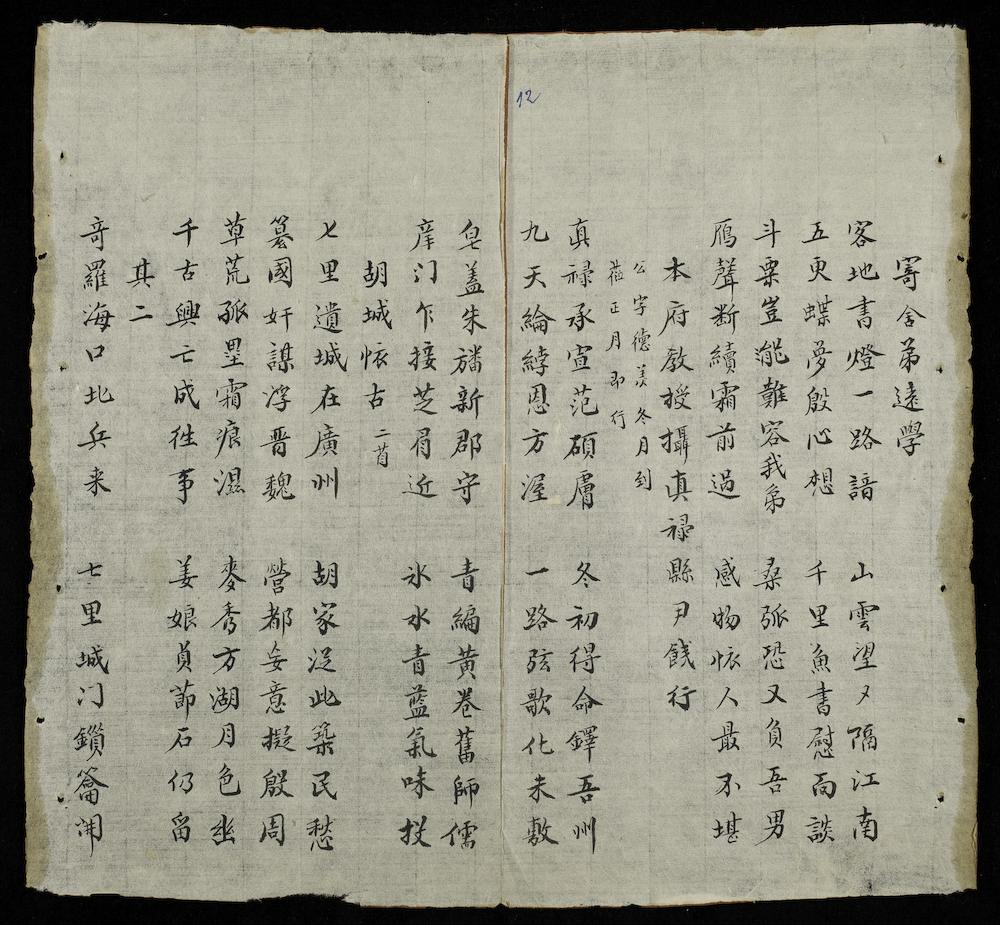 寄舍弟遠學
客地書燈一路諳 山雲望夕隔江南
五更蝶夢殷心想 千里魚書慰面談
斗粟豈能難容我弟 桑弧恐又負吾男
鴈聲断續霜前過 感物懷人最不堪
本府教授攝真禄縣尹餞行
公字德美冬月到
莅正月即行
真禄承宣范碩膚 冬初得命鐸吾州
九天綸綍恩方渥 一路弦歌化未敷
皂盖朱旛新郡守 青編黄卷舊師儒
庠门乍接芝眉近 氷水青藍氣味投
胡城懷古 二首
七里遺城在廣州 胡家従此築民愁
篡國奸謀浮晋魏 營都妄意擬殷周
草荒孤壘霜痕濕 麥秀方湖月色幽
千古興亡成徃事 姜娘貞節石仍留
其二
竒羅海口北兵来 七里城门鎖籥開
12